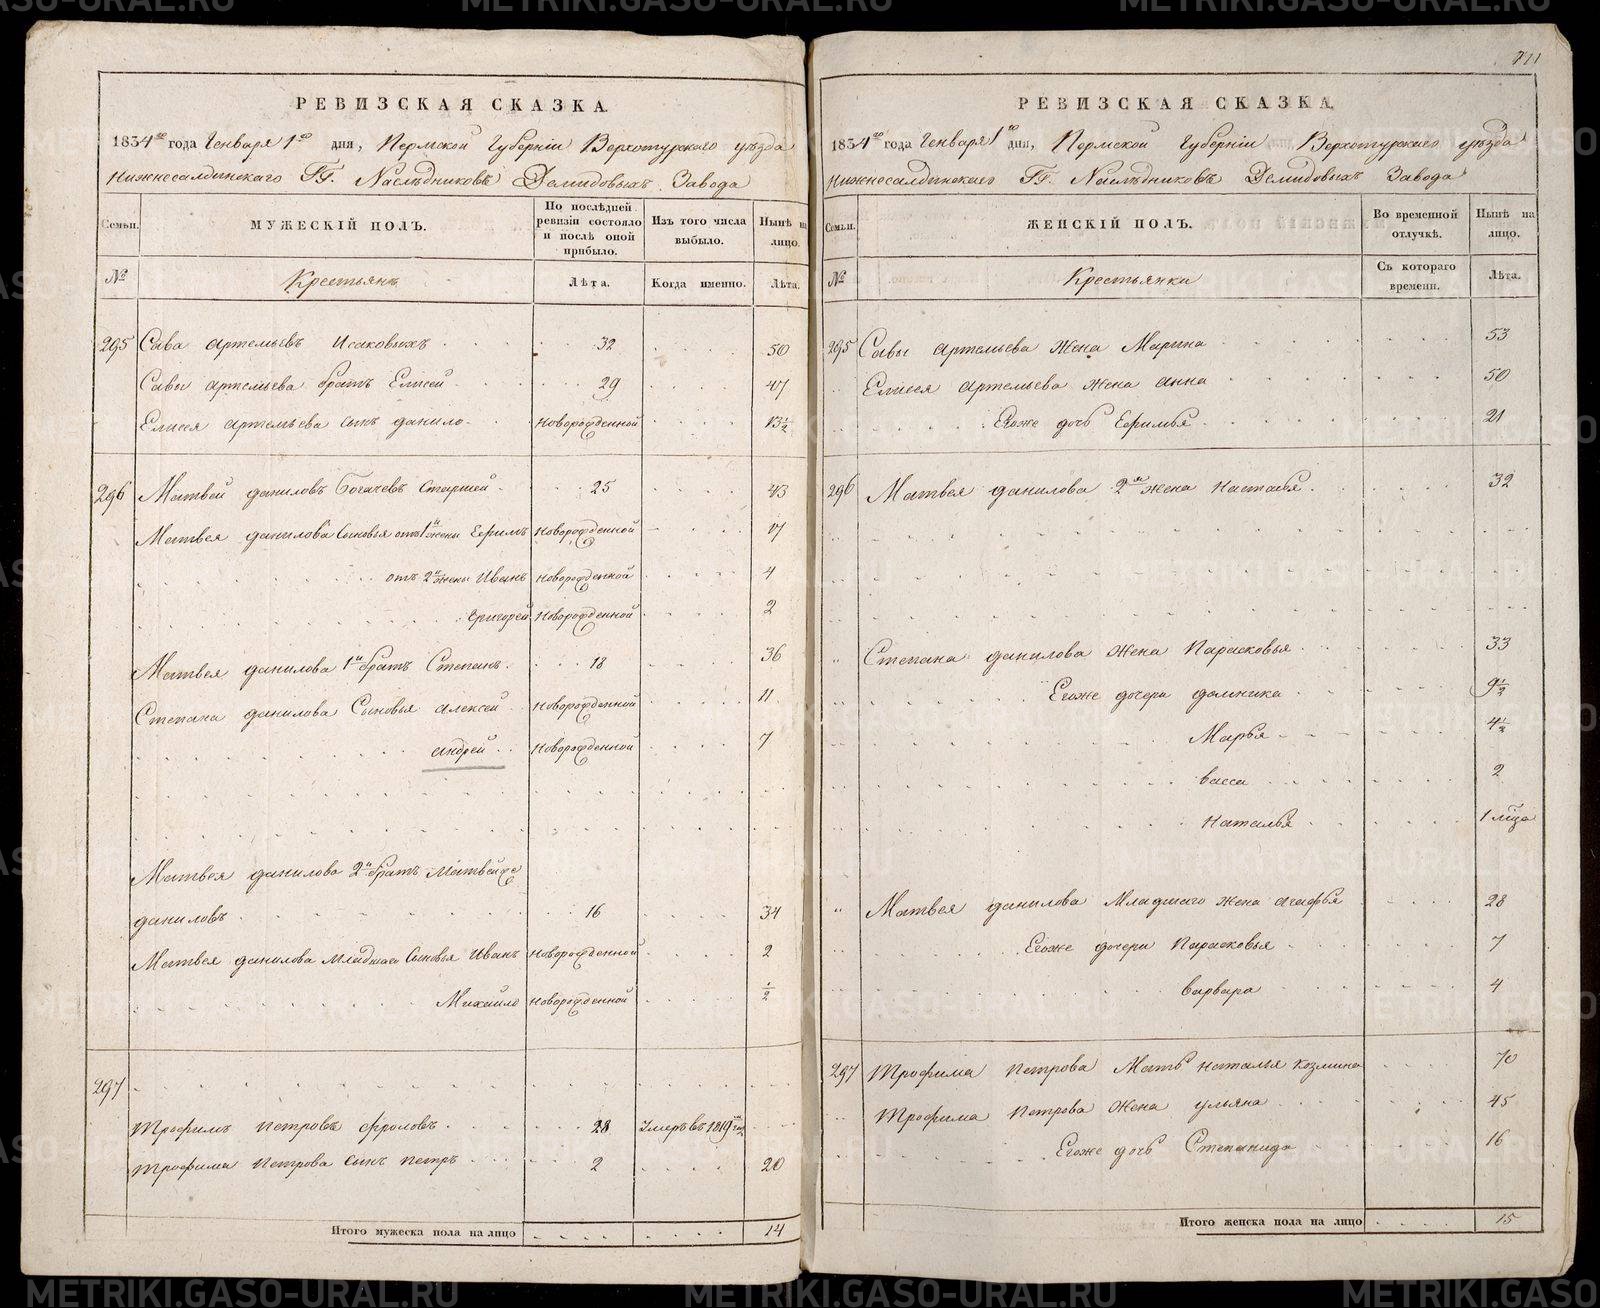 РЕВИЗСКАЯ СКАЗКА.
1834го года Генваря 1го дня, Пермской Губернiи Верхотурскаго уѣзда
Нижнесалдинскаго ГГ. Наслѣдниковъ Демидовыхъ Завода
Семьи. МУЖЕСКIЙ ПОЛЪ. По послѣдней ревизiи состояло и послѣ оной прибыло. Изъ того числа выбыло. Нынѣ на лицо.
№ Крестьянъ Лѣта. Когда именно. Лѣта.
295 Сава Артемьевъ Исаковыхъ 32 50
Савы Артемьева братъ Елисей 29 47
Елисея Артемьева сынъ Данило новорожденной 13½
296 Матвей Даниловъ Богачевъ Старшей 25 43
Матвея Данилова Сыновья отъ 1й жены Ефримъ новорожденной 17
отъ 2й жены Иванъ новорожденной 4
Григорей новорожденной 2
Матвея Данилова 1й братъ Степанъ 18 36
Степана Данилова Сыновья Алексей новорожденной 11
Андрей новорожденной 7
Матвея Данилова 2й братъ Матвей же
Даниловъ 16 34
Матвея Данилова Младшаго Сыновья Иванъ новорожденной 2
Михайло новорожденной ½
297
Трофимъ Петровъ Фроловъ 28 Умеръ въ 1819м год
Трофима Петрова сынъ Петръ 2 20
Итого мужеска пола на лицо 14
711
РЕВИЗСКАЯ СКАЗКА.
1834го года Генваря 1го дня, Пермской Губернiи Верхотурскаго уѣзда
Нижнесалдинскаго ГГ. Наслѣдниковъ Демидовыхъ Завода
Семьи. ЖЕНСКIЙ ПОЛЪ. Во временной отлучкѣ. Нынѣ на лицо.
№ Крестьянки Съ котораго времени. Лѣта.
295 Савы Артемьева жена Марина 53
Елисея Артемьева жена Анна 50
Егоже дочь Ефримья 21
296 Матвея Данилова 2я жена Настасья 32
" Степана Данилова жена Парасковья 33
Егоже дочери Домника 9½
Марья 4½
Васса 2
Наталья 1 мца
" Матвея Данилова Младшаго жена Агафья 28
Егоже дочери Парасковья 7
Варвара 4
297 Трофима Петрова Мать Наталья Козмина 70
Трофима Петрова жена Ульяна 45
Егоже дочь Степанида 16
Итого женска пола на лицо 15
METRIKI.GASO-URAL.RU